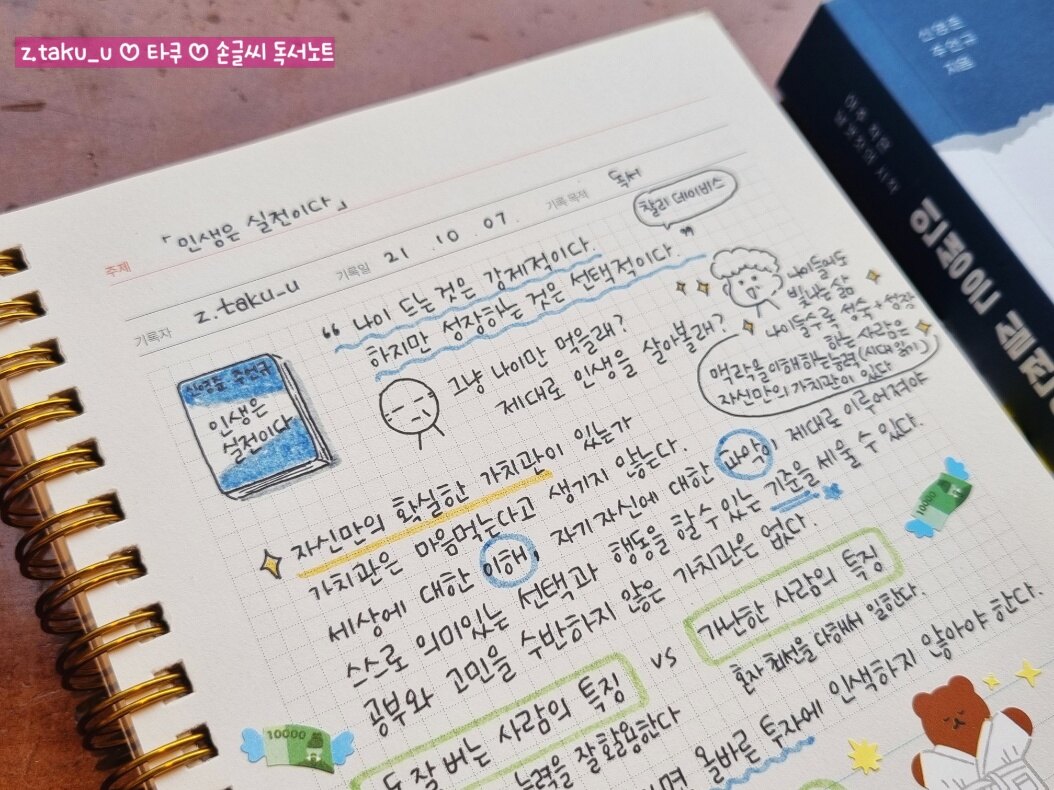 z.taku_u ♡ 타쿠 ♡ 손글씨 독서노트
신영준
주언규
지음
인생은 실전이다
주제 「인생은 실전이다」
기록자 z.taku_u 기록일 21 .10 .07. 기록 목적 독서
찰리 데이비스
“ 나이 드는 것은 강제적이다.
하지만 성장하는 것은 선택적이다. ”
그냥 나이만 먹을래?
제대로 인생을 살아볼래?
나이들어도
빛나는 삶
나이들수록 성숙+성장
하는 사람은
맥락을 이해하는 능력(시대 읽기)
자신만의 가치관이 있다
인생은
실전이다
자신만의 확실한 가치관이 있는가
가치관은 마음먹는다고 생기지 않는다.
세상에 대한 이해, 자기 자신에 대한 파악이 제대로 이루어져야
스스로 의미있는 선택과 행동을 할 수 있는 기준을 세울 수 있다.
공부와 고민을 수반하지 않은 가치관은 없다.
돈 잘 버는 사람의 특징 vs 가난한 사람의 특징
능력을 잘 활용한다
혼자 최선을 다해서 일한다.
올바른 투자에 인색하지 않아야 한다.
10000
10000